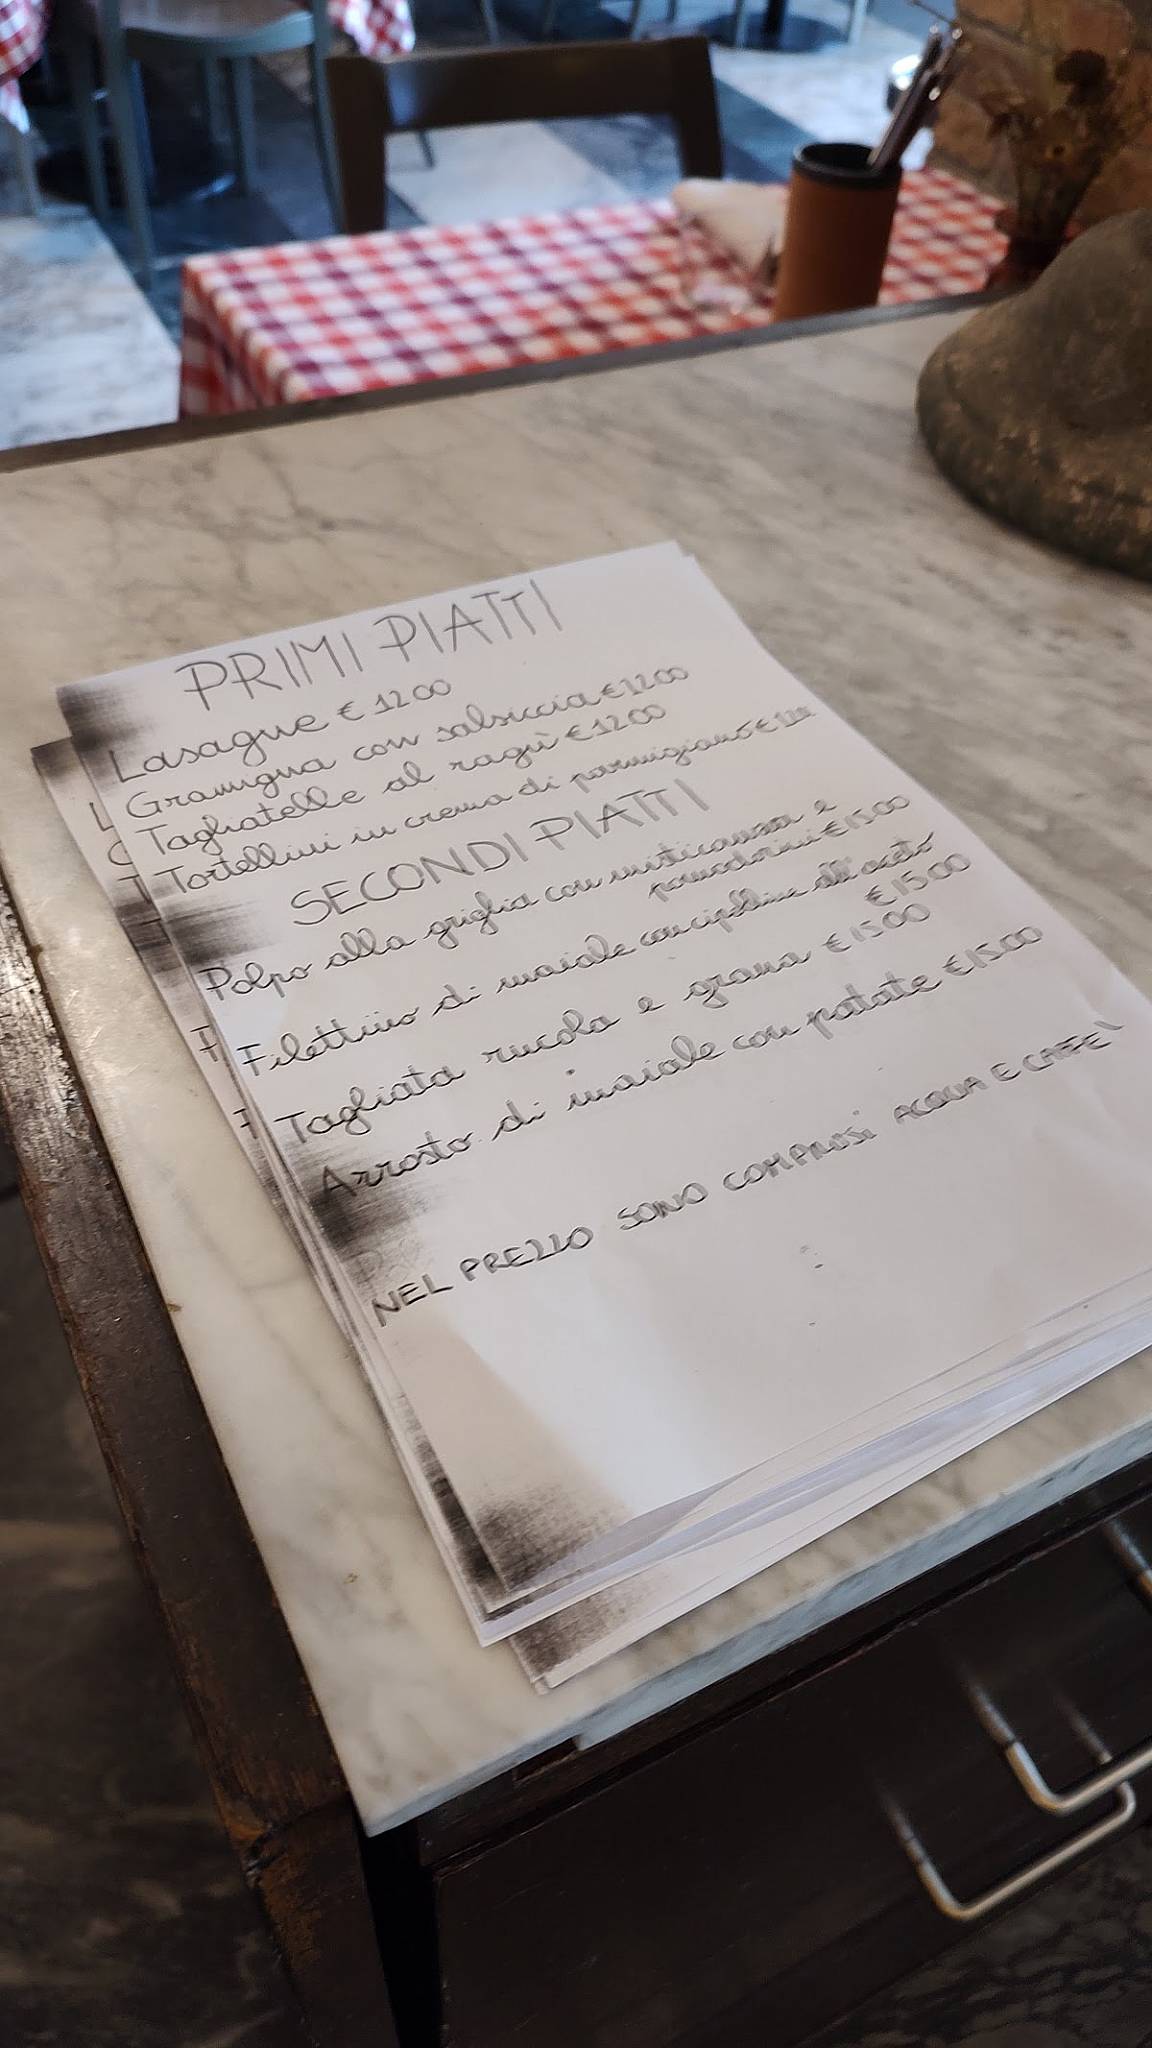 PRIMI PIATTI
Lasagne € 12.00
Gramigna con salsiccia € 12.00
Tagliatelle al ragù € 12.00
Tortellini in crema di parmigiano € 12.00
SECONDI PIATTI
Polpo alla griglia con misticanza e
pomodorini € 15.00
Filettino di maiale con cipolline all'aceto
€ 15.00
Tagliata rucola e grana € 15.00
Arrosto di maiale con patate € 15.00
NEL PREZZO SONO COMPRESI ACQUA E CAFFE'